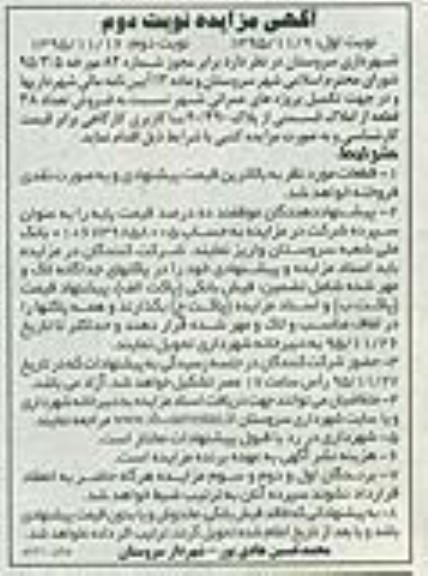 آگهی مزایده نوبت دوم
نوبت اول: ۱۳۹۵/۱۱/۹ نوبت دوم: ۱۳۹۵/۱۱/۱۷
شهرداری سروستان در نظر دارد برابر مجوز شماره ۸۲ مورخه ۹۵/۳/۵
شورای محترم اسلامی شهر سروستان و ماده ۱۳ آیین نامه مالی شهرداریها
و در جهت تکمیل پروژه های عمرانی شهر نسبت به فروش تعداد ۳۸
قطعه از املاک قسمتی از پلاک با کاربری کارگاهی برابر قیمت
کارشناسی و به صورت مزایده کتبی با شرایط ذیل اقدام نماید.
شرایط:
۱- قطعات مورد نظر به بالاترین قیمت پیشنهادی و به صورت نقدی
فروخته خواهد شد.
۲- پیشنهاددهندگان موظفند ده درصد قیمت پایه را به عنوان
سپرده شرکت در مزایده به حساب بانک
ملی شعبه سروستان واریز نمایند. شرکت کنندگان در مزایده
باید اسناد مزایده و پیشنهادی خود را در پاکتهای جداگانه لاک و
مهر شده شامل تضمین، فیش بانکی (پاکت الف)، پیشنهاد قیمت
(پاکت ب) و اسناد مزایده (پاکت ج) بگذارند و همه پاکتها را
در لفاف مناسب و لاک و مهر شده قرار دهند و حداکثر تا تاریخ
۹۵/۱۱/۲۶ به دبیرخانه شهرداری تحویل نمایند.
۳- حضور شرکت کنندگان در جلسه رسیدگی به پیشنهادات که در تاریخ
۹۵/۱۱/۲۷ رأس ساعت ۱۷ عصر تشکیل خواهد شد آزاد می باشد.
۴- متقاضیان می توانند جهت دریافت اسناد مزایده به دبیرخانه شهرداری
و یا سایت شهرداری سروستان مراجعه نمایند.
۵- شهرداری در رد یا قبول پیشنهادات مختار است.
۶- هزینه نشر آگهی به عهده برنده مزایده است.
۷- برندگان اول و دوم و سوم مزایده هرگاه حاضر به انعقاد
قرارداد نشوند سپرده آنان به ترتیب ضبط خواهد شد.
۸- به پیشنهاداتی که فاقد فیش بانکی، مخدوش و یا بدون قیمت پیشنهادی
باشد و یا بعد از تاریخ اعلام شده تحویل گردد، ترتیب اثر داده نخواهد شد.
محمدحسین هادی پور - شهردار سروستان